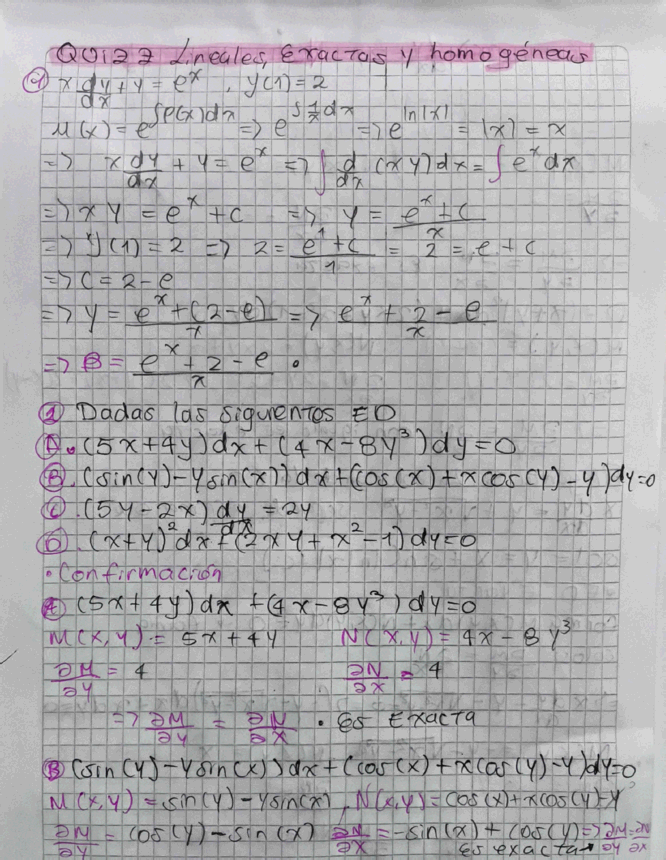 QUIZ 2 Lineales, Exactas y homogéneas
x dy/dx + y = e^x , y(1) = 2
μ(x) = e^∫p(x)dx => e^∫1/x dx => e^ln|x| = |x| = x
=> x dy/dx + y = e^x => ∫ d/dx (xy) dx = ∫ e^x dx
=> xy = e^x + c => y = (e^x + c)/x
=> y(1) = 2 => 2 = (e^1 + c)/1 = 2 = e + c
=> c = 2 - e
=> y = (e^x + (2-e))/x => (e^x + 2 - e)/x
=> B = (e^x + 2 - e)/x •
① Dadas las siguientes ED
A. (5x+4y)dx + (4x-8y³)dy=0
B. (sin(y)-ysin(x))dx+(cos(x)+xcos(y)-y)dy=0
C. (5y-2x) dy/dx = 2y
D. (x+y)²dx+(2xy+x²-1)dy=0
• Confirmación
A (5x+4y)dx + (4x-8y³)dy=0
M(x,y) = 5x+4y N(x,y) = 4x-8y³
∂M/∂y = 4 ∂N/∂x = 4
=> ∂M/∂y = ∂N/∂x • Es Exacta
B (sin(y)-ysin(x))dx+(cos(x)+xcos(y)-y)dy=0
M(x,y) = sin(y)-ysin(x), N(x,y)=cos(x)+xcos(y)-y
∂M/∂y = cos(y)-sin(x) ∂N/∂x = -sin(x)+cos(y) => ∂M/∂y = ∂N/∂x
Es exacta